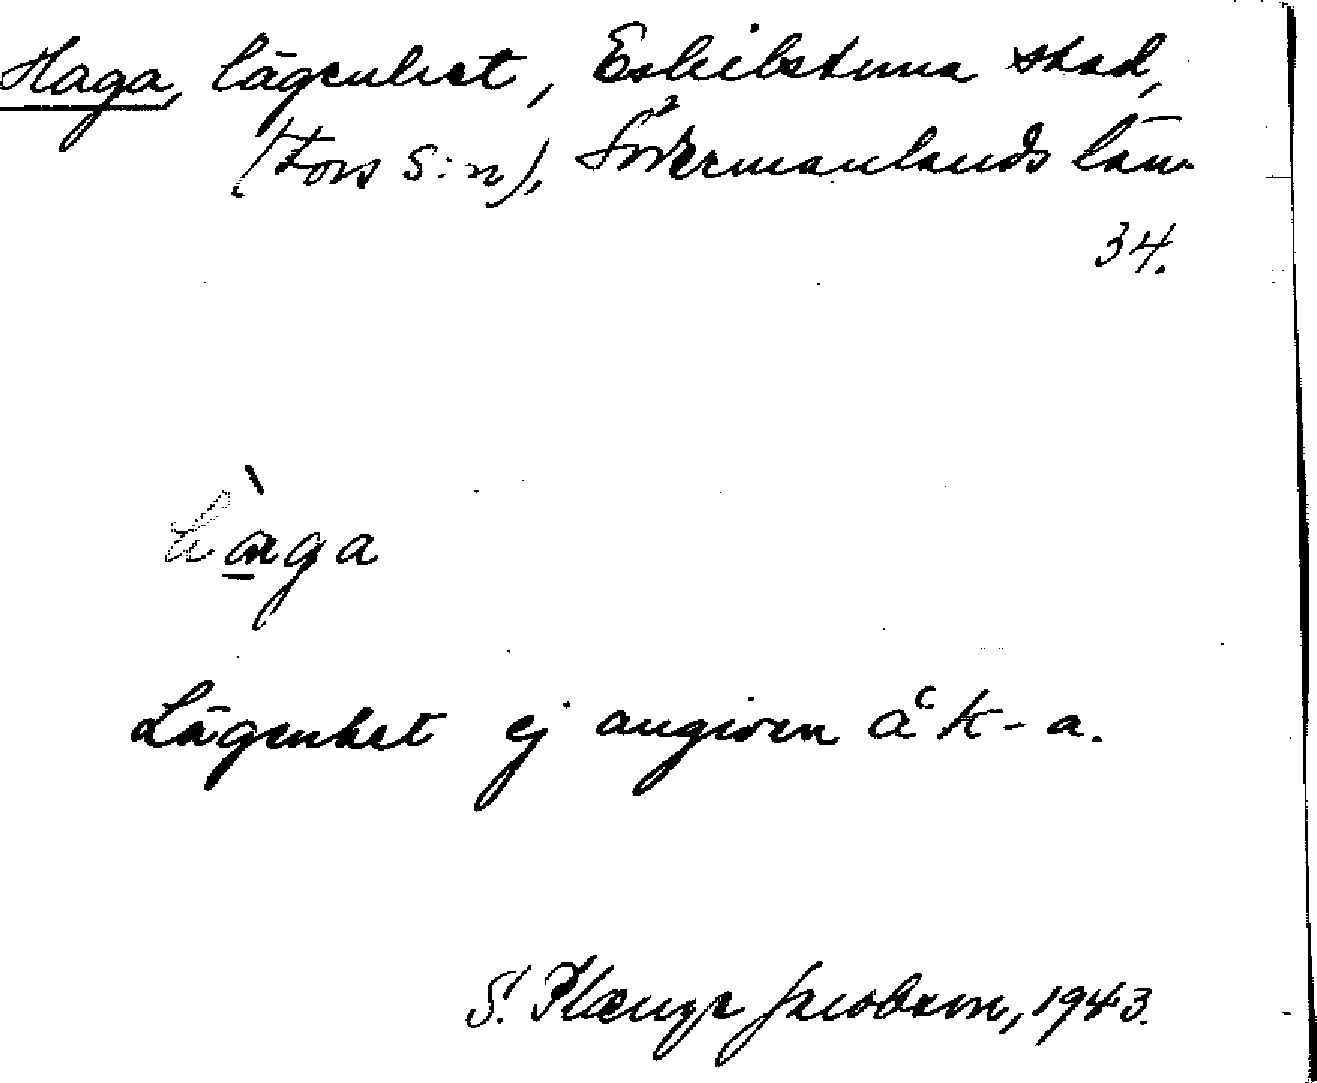 Haga, lägenhet, Eskilstuna stad,
(Fors S:n), Södermanlands län
34.
hàga
Lägenhet ej angiven å k-a.
S. Jacobson, 1943.